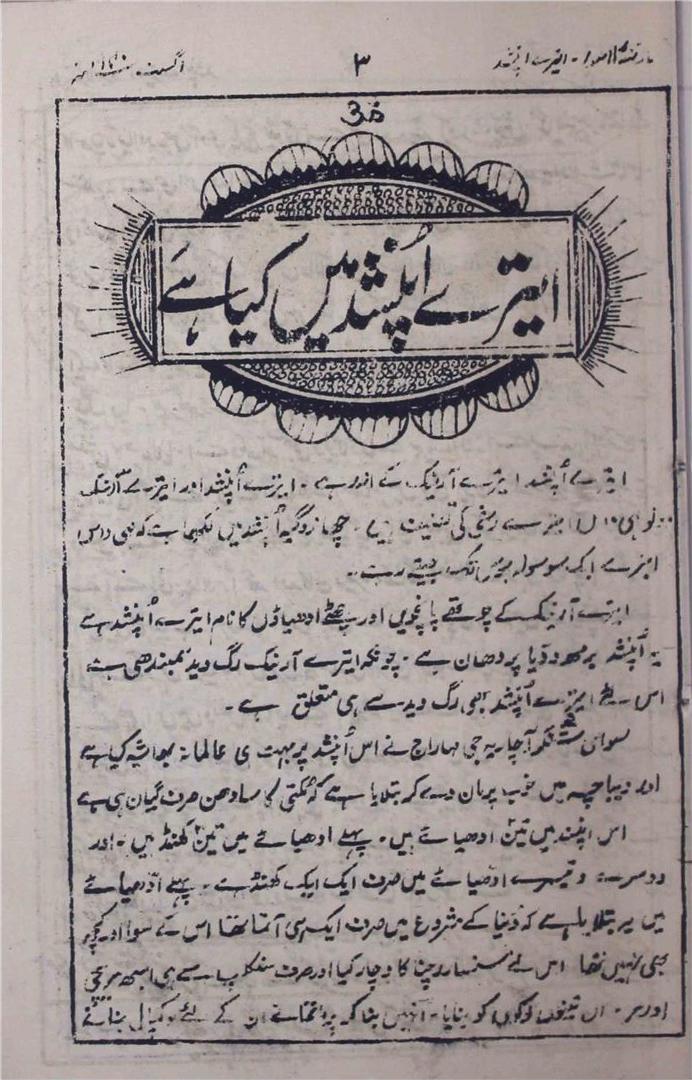 مارتنڈ لاہور۔ ایترے اپنشد
۳
اگست
ॐ
ایترے اُپنشد میں کیا ہَے
ایترے اُپنشد ایترے آرنیک کے اندر ہے۔ ایترے اُپنشد اور ایترے آرنیک
دونو ہی ایترے رشی کی تصنیف ہیں۔ چھاندوگیہ اُپنشد میں لکھا ہے کہ مہی داس
ایترے ایک سو سولہ برس تک جیتے رہے۔
ایترے آرنیک کے چوتھے پانچویں اور چھٹے ادھیاؤں کا نام ایترے اُپنشد ہے
یہ اُپنشد برھم ودّیا پردھان ہے۔ چونکہ ایترے آرنیک رگ وید سمبندھی ہے
اس لئے ایترے اُپنشد بھی رگ وید سے ہی متعلق ہے۔
سوامی شنکر آچاریہ جی مہاراج نے اس اُپنشد پر بہت ہی عالمانہ بھاشیہ کیا ہے
اور دیباچہ میں خوب پرمان دے کر بتلایا ہے کہ مُکتی کا سادھن صرف گیان ہی ہے
اس اپنشد میں تین ادھیائے ہیں۔ پہلے ادھیائے میں تین کھنڈ ہیں۔ اور
دوسرے و تیسرے ادھیائے میں صرف ایک ایک کھنڈ ہے۔ پہلے ادھیائے
میں یہ بتلایا ہے کہ دُنیا کے شروع میں صرف ایک ہی آتما تھا اس کے سوا اور کچھ
بھی نہیں تھا اس نے سنسار رچنا کا وچار کیا اور صرف سنکلپ سے ہی امبھ مریچی
اور مر۔ ان تینوں لوکوں کو بنایا۔ انہیں بنا کر پرماتما نے ان کے لئے لوکپال بنانے